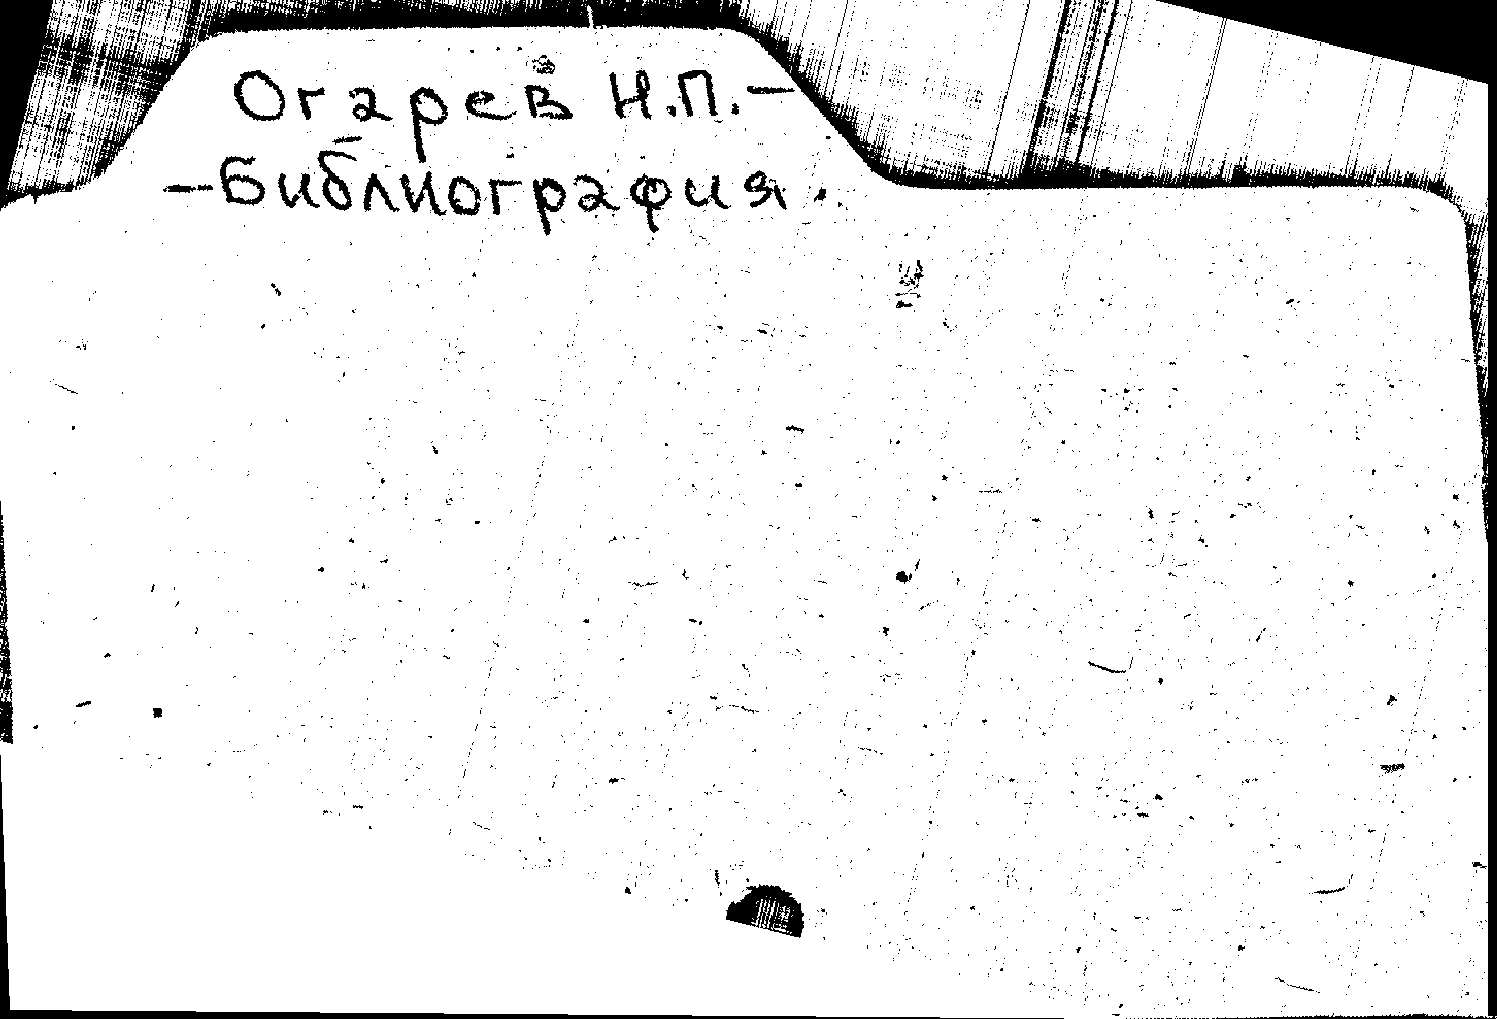 Огарев Н.П. –
– Библиография